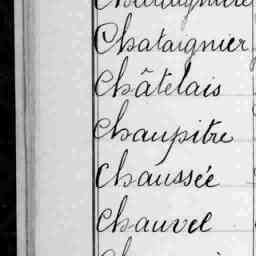 Chataignier
Châtelais
Chaupitre
Chaussée
Chauvel